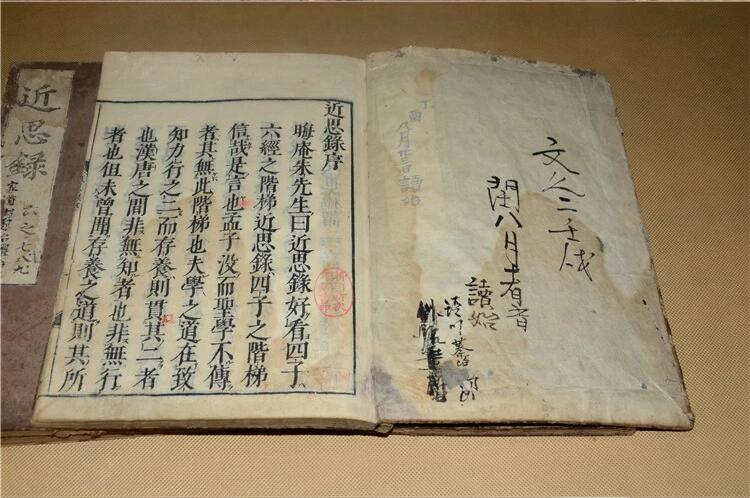 文久二壬戌
閏八月者膏
讀始
近思錄序
晦庵朱先生曰近思錄好看四子
六經之階梯近思錄四子之階梯
信哉是言也孟子没而聖學不傳
者其無此階梯也夫學之道在致
知力行之二而存養則貫其二者
也漢唐之間非無知者也非無行
者也但未曾聞存養之道則其所
近思錄
六之七八九